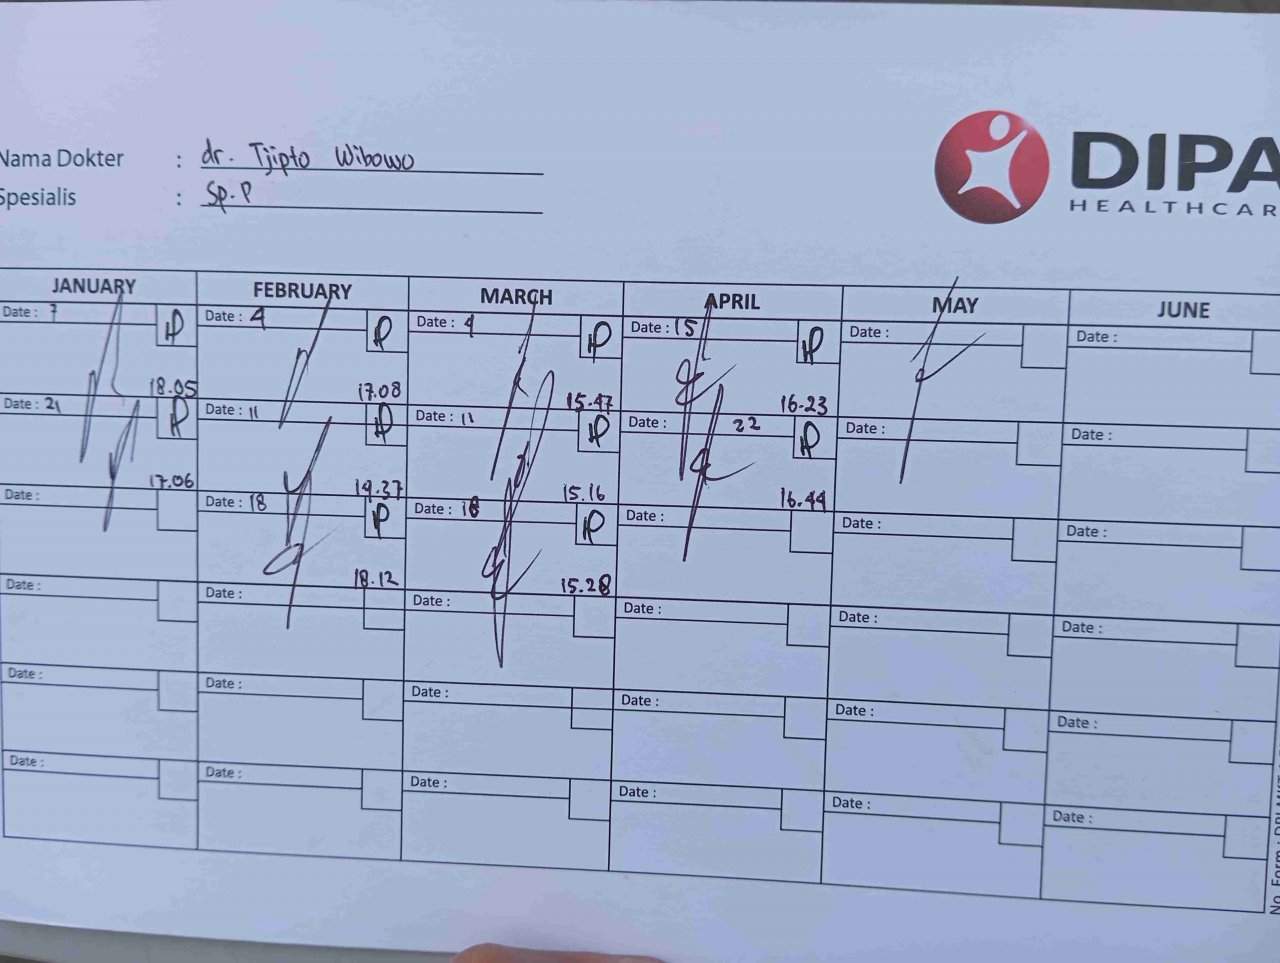 Nama Dokter : dr. Tjipto Wibowo
Spesialis : Sp.P
DIPA
HEALTHCAR
JANUARY FEBRUARY MARCH APRIL MAY JUNE
Date : 7 Date : 4 Date : 4 Date : 15 Date : Date :
18.05 17.08 15.47 16.23
Date : 21 Date : 11 Date : 11 Date : 22 Date : Date :
17.06 19.37 15.16 16.44
Date : Date : 18 Date : 18 Date : Date : Date :
18.12 15.28
Date : Date : Date : Date : Date : Date :
Date : Date : Date : Date : Date : Date :
Date : Date : Date : Date : Date : Date :
No. Form :